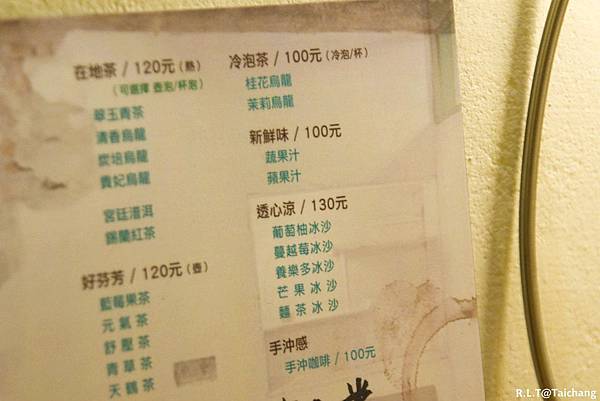 在地茶 / 120元 (熱)
(可選擇 壺泡/杯泡)
翠玉青茶
清香烏龍
炭培烏龍
貴妃烏龍
宮廷溍洱
錫蘭紅茶
好芬芳 / 120元 (壺)
藍莓果茶
元氣茶
舒壓茶
青草茶
天鶴茶
冷泡茶 / 100元 (冷泡/杯)
桂花烏龍
茉莉烏龍
新鮮味 / 100元
蔬果汁
蘋果汁
透心涼 / 130元
葡萄柚冰沙
蔓越莓冰沙
養樂多冰沙
芒果冰沙
麵茶冰沙
手沖感
手沖咖啡 / 100元
R.L.T@Taichang